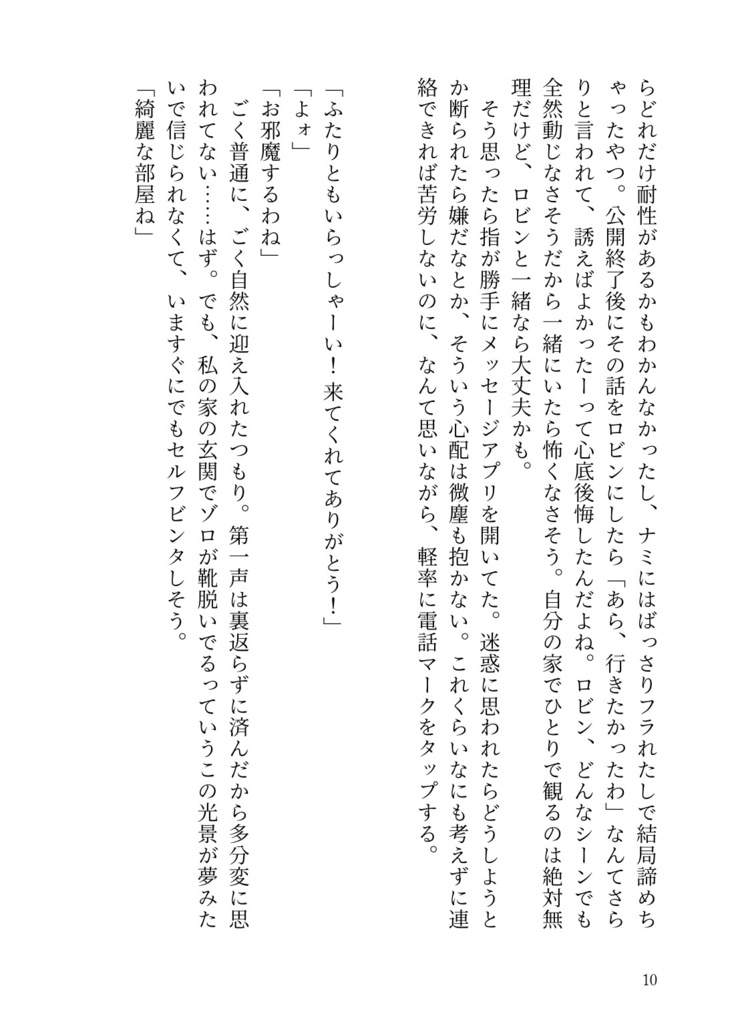 らどれだけ耐性があるかもわかんなかったし、ナミにはばっさりフラれたしで結局諦めち
ゃったやつ。公開終了後にその話をロビンにしたら「あら、行きたかったわ」なんてさら
りと言われて、誘えばよかったーって心底後悔したんだよね。ロビン、どんなシーンでも
全然動じなさそうだから一緒にいたら怖くなさそう。自分の家でひとりで観るのは絶対無
理だけど、ロビンと一緒なら大丈夫かも。
　そう思ったら指が勝手にメッセージアプリを開いてた。迷惑に思われたらどうしようと
か断られたら嫌だなとか、そういう心配は微塵も抱かない。これくらいなにも考えずに連
絡できれば苦労しないのに、なんて思いながら、軽率に電話マークをタップする。
「ふたりともいらっしゃーい！来てくれてありがとう！」
「よォ」
「お邪魔するわね」
　ごく普通に、ごく自然に迎え入れたつもり。第一声は裏返らずに済んだから多分変に思
われてない……はず。でも、私の家の玄関でゾロが靴脱いでるっていうこの光景が夢みた
いで信じられなくて、いますぐにでもセルフビンタしそう。
「綺麗な部屋ね」
10